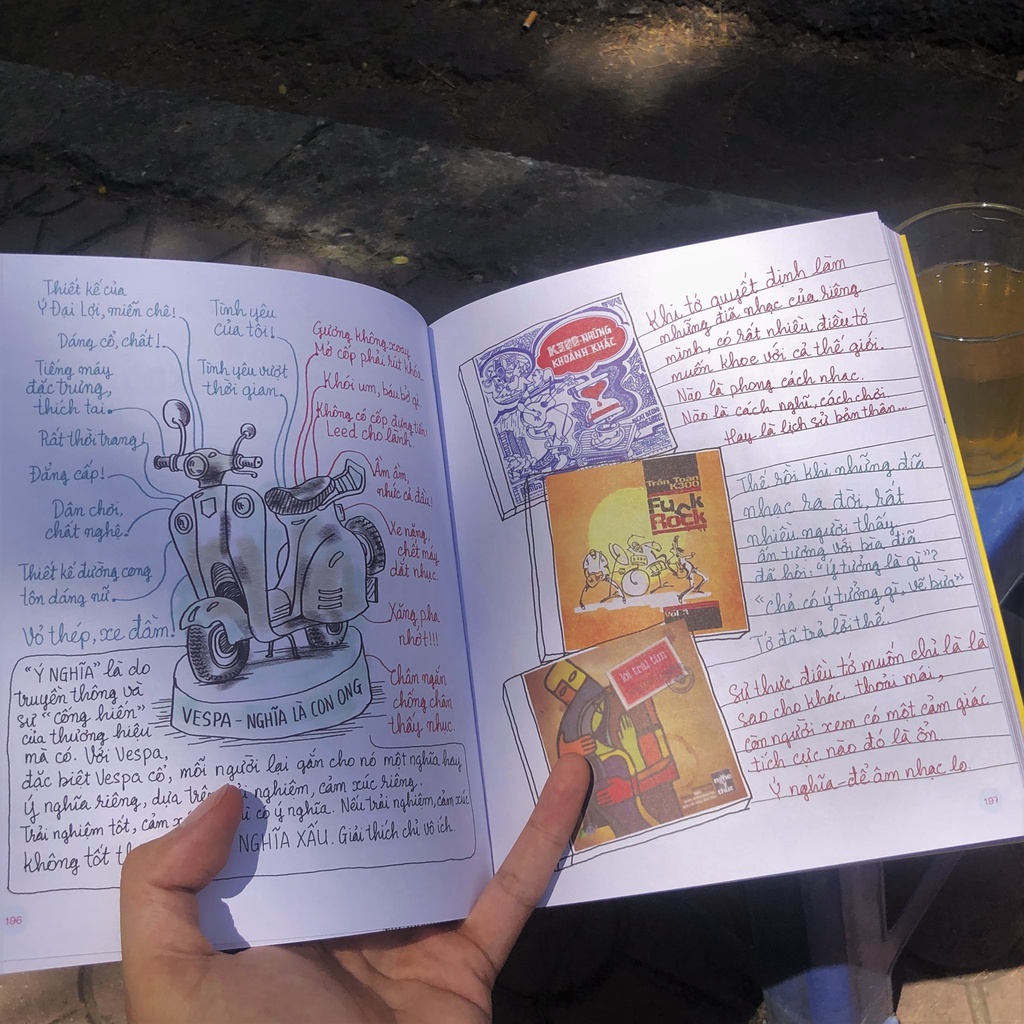 Thiết kế của
Ý Đại Lợi, miễn chê!
Dáng cổ, chất!
Tiếng máy
đặc trưng,
thích tai.
Rất thời trang!
Đẳng cấp!
Dân chơi,
chất nghệ.
Thiết kế đường cong
tôn dáng nữ.
Vỏ thép, xe đầm!
Tình yêu
của tôi!
Tình yêu vượt
thời gian.
Gương không xoay
Mở cốp phải rút khóa.
Khói um, báu bở gì.
Không có cốp đựng tiền
Leed cho lành.
Ầm ầm,
nhức cả đầu!
Xe nặng,
chết máy
dắt nhục.
Xăng pha
nhớt!!!
Chân ngắn
chống chân
thấy nhục.
VESPA - NGHĨA LÀ CON ONG
"Ý NGHĨA" là do
truyền thông và
sự "cống hiến"
của thương hiệu
mà có. Với Vespa,
đặc biệt Vespa cổ, mỗi người lại gắn cho nó một nghĩa hay
ý nghĩa riêng, dựa trên nghiệm, cảm xúc riêng.
Trải nghiệm tốt, cảm có ý nghĩa. Nếu trải nghiệm, cảm xúc
không tốt NGHĨA XẤU. Giải thích chỉ vô ích.
196
K300-NHỮNG
KHOẢNH KHẮC
Trần Toàn
K300
Fuck
Rock
Vol.3
lời trái tim
Khi tớ quyết định làm
những đĩa nhạc của riêng
mình, có rất nhiều điều tớ
muốn khoe với cả thế giới.
Nào là phong cách nhạc.
Nào là cách nghĩ, cách chơi
Hay là lịch sử bản thân...
Thế rồi khi những đĩa
nhạc ra đời, rất
nhiều người thấy
ấn tượng với bìa đĩa
đã hỏi: "ý tưởng là gì"?
"chả có ý tưởng gì, vẽ bừa"
Tớ đã trả lời thế.
Sự thực điều tớ muốn chỉ là là
sao cho khác, thoải mái,
còn người xem có một cảm giác
tích cực nào đó là ổn.
Ý nghĩa - để âm nhạc lo.
197